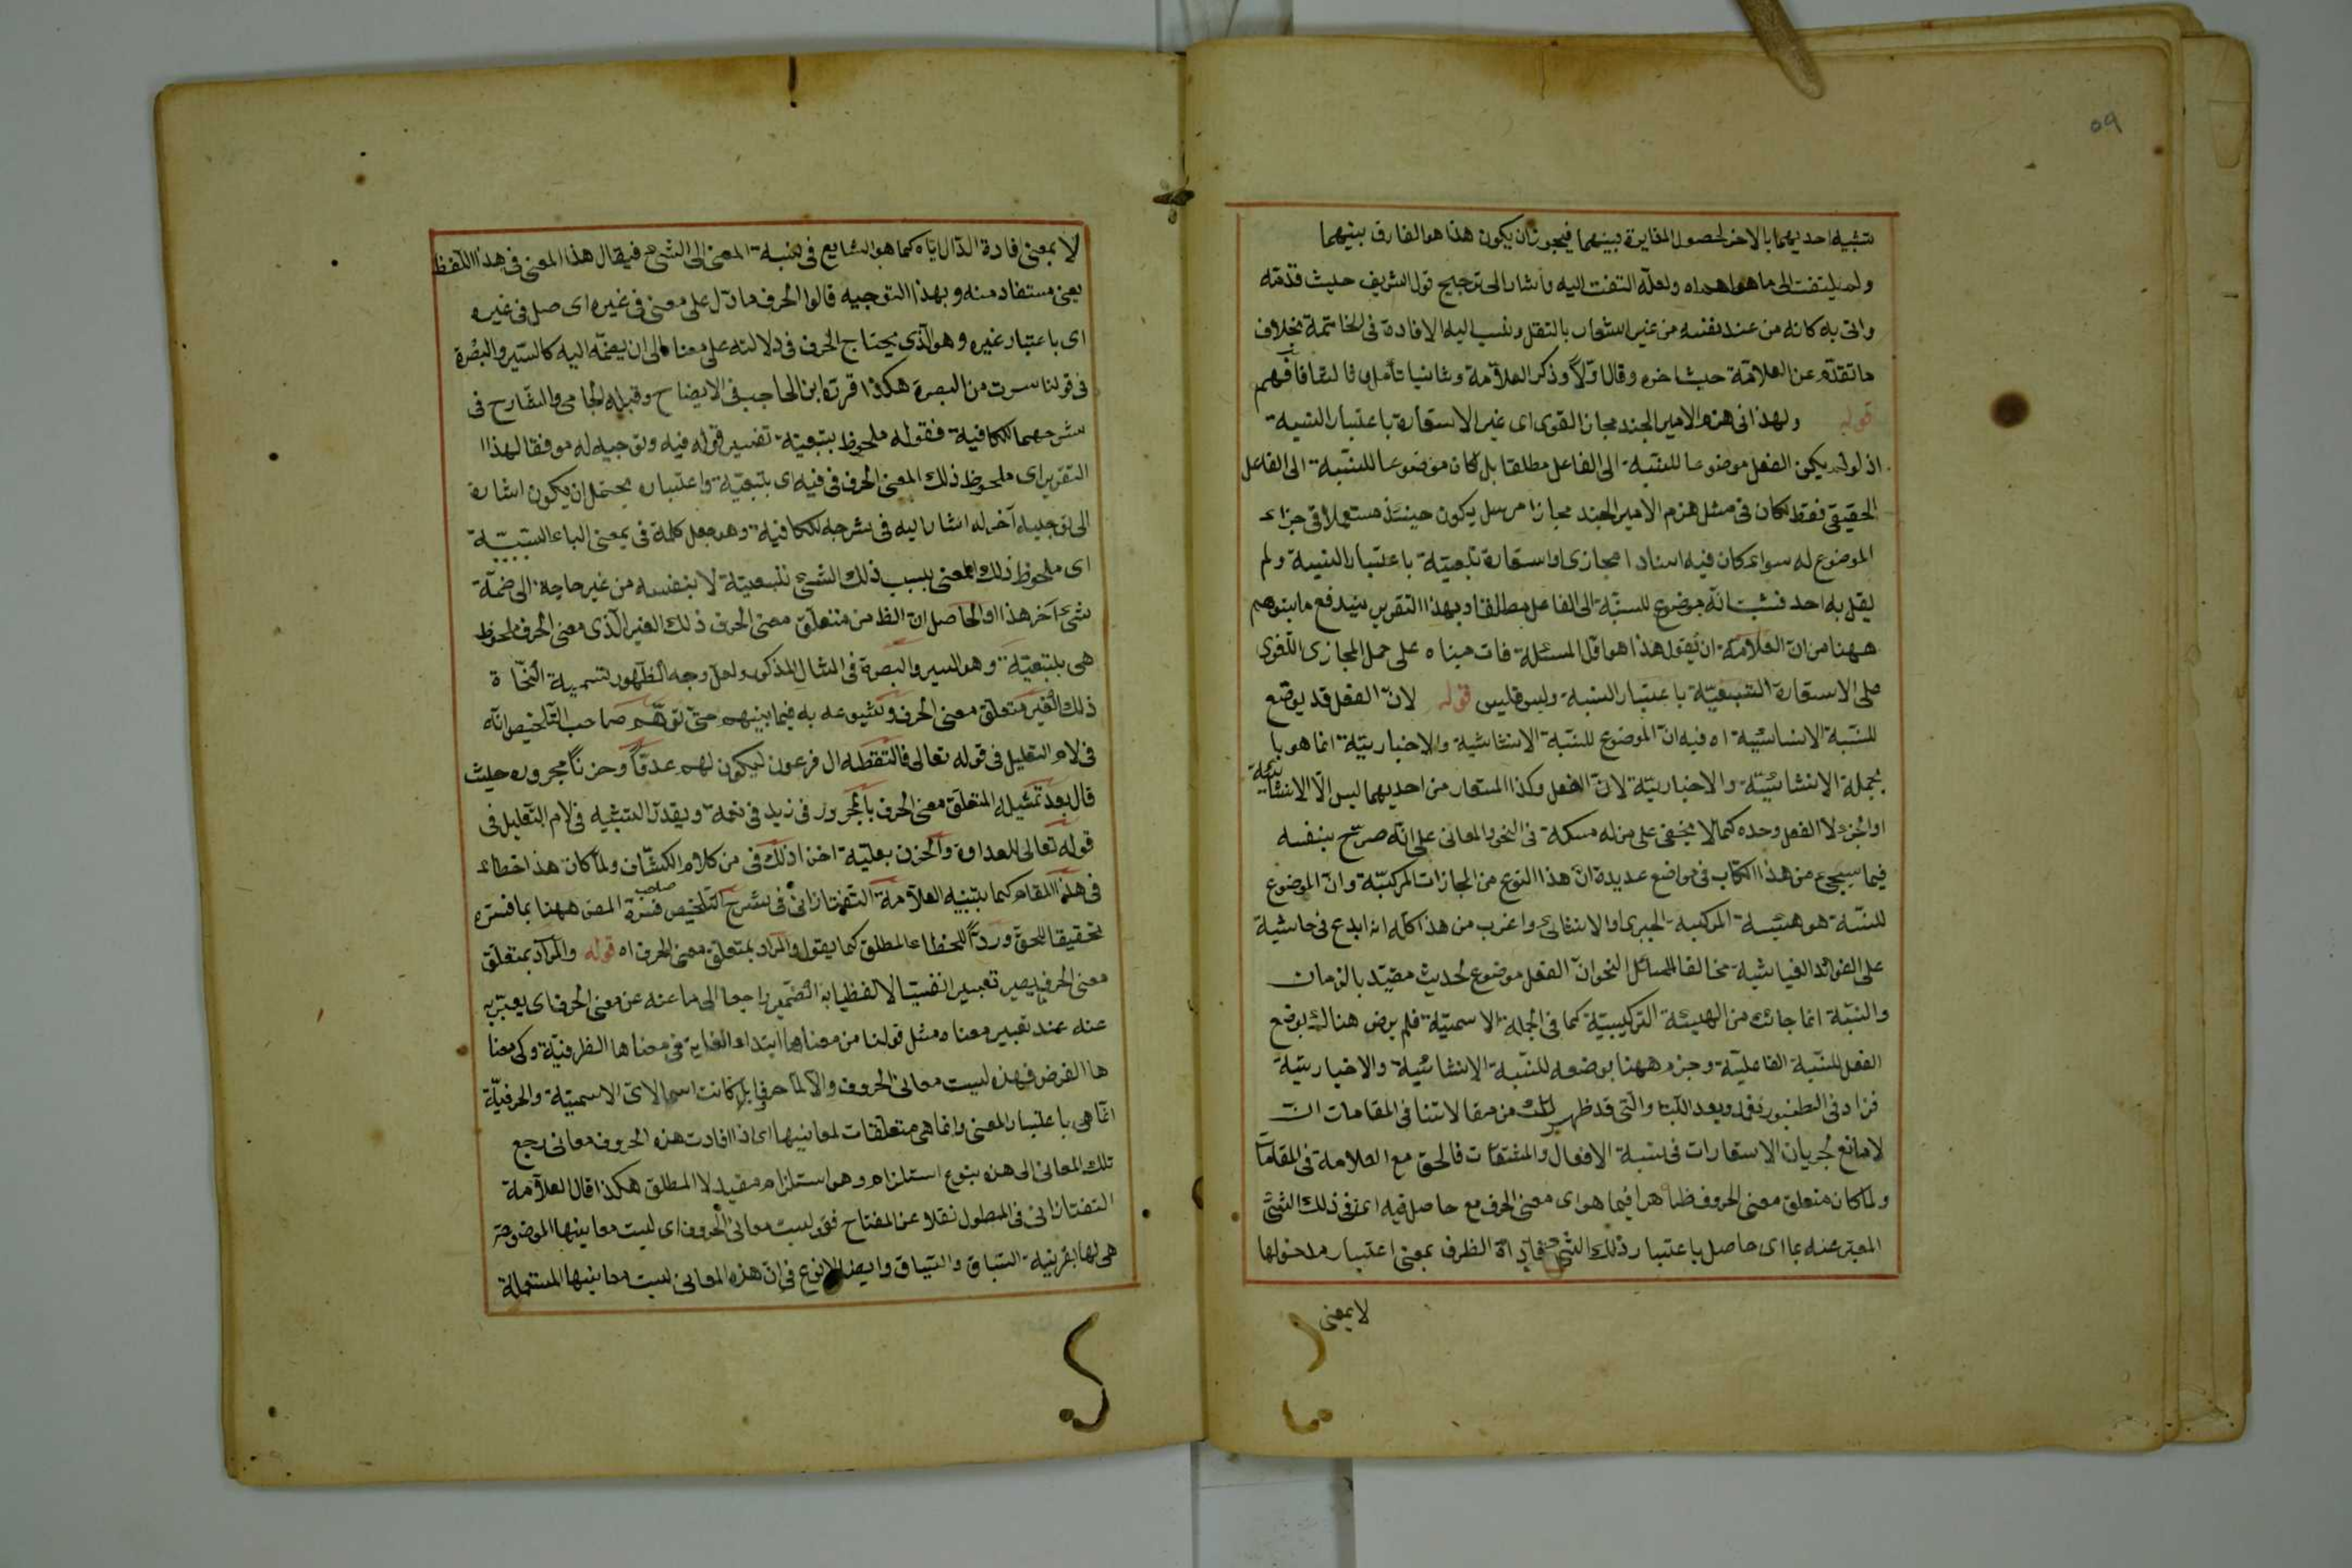 ٥٩
تشبيه احديهما بالاخر لحصول المغايرة بينهما فيجوز ان يكون هذا هو الفارق بينهما
ولم يلتفت الى ما هو اهداه ولعلّه التفت اليه واشار الى ترجيح قول الشريف حيث قدّمه
واتى به كانه من عند نفسه من غير اشعار بالنقل ونسب اليه الافادة فى الخاتمة بخلاف
ما تقدّم عن العلامّة حيث اخره وقال اوّلاً وذكر العلّامة وثانيا تأمل فافهم
قوله ولهذا فى هزم الامير الجند مجاز القوى اى غير الاستعارة باعتبار النسبة
اذ لو لم يكن الفعل موضوعا للنسّبة الى الفاعل مطلقا بل كان موضوعا للنسّبة الى الفاعل
الحقيقى فقط لكان فى مثل هزم الامير الجند مجازا مرسل يكون حينئذ مستعملا فى جزء
الموضوع له سواء كان فيه اسنادا مجازى او استعارة تبعيّة باعتبار النسبة ولم
يقل به احد فثبت انّه موضوع للنسبّة الى الفاعل مطلقا وبهذا التقرير يندفع ما يتوهم
ههنا من انّ العلامّة ان يقول هذا هو اوّل المسئلة فات مبناه على حمل المجازى اللّغوى
على الاستعارة التبعيّة باعتبار النسبة وليس فليس قوله لانّ الفعل قد يوضع
للنسّبة الانشائية اه فيه انّ الموضوع للنسّبة الانشائية والاخباريّة انما هو با
لجملة الانشائيّة والاخباريّة لانّ الفعل وكذا المستعار من احديهما ليس الّا الانشائيّة
او الجزء لا الفعل وحده كما لا يخفى على من له مسكة فى النحو والمعانى على انّه صرّح بنفسه
فيما سيجىء من هذا الكتاب فى مواضع عديدة انّ هذا النوع من المجازات المركبّة وانّ الموضوع
للنسّبة هو هيئة المركبة الخبرى او الانشائى واغرب من هذا كلّه انه ابدع فى حاشية
على الفوائد الغياثية مخالفا لمسائل النحو انّ الفعل موضوع لحديث مقيّد بالزمان
والنسّبة انما جائت من الهيئة التركيبيّة كما فى الجملة الاسميّة فلم يرض هنالك بوضع
الفعل للنسّبة الفاعليّة وجزم ههنا بوضعه للنسّبة الانشائية والاخباريّة
فزاد فى الطنبور نغمة وبعد اللتيا والّتى قد ظهر لك من مقالاتنا فى المقامات ان
لا مانع لجريان الاستعارات فى نسبة الافعال والمشتقات فالحق مع العلامة فى المقامات
ولما كان متعلق معنى الحروف ظاهرا فيما هو اى معنى الحرف مع حاصل فيه اى فى ذلك الشئ
المعبر عنه بما اى حاصل باعتبار ذلك الشئ فاداة الظرف بمعنى اعتبار مدخولها
لا بمعنى
لا بمعنى افادة الدّال ايّاه كما هو الشايع فى نسبة المعنى الى الشئ فيقال هذا المعنى فى هذا اللّفظ
يعنى مستفاد منه وبهذا التوجيه قالوا الحرف ما دّل على معنى فى غيره اى حاصل فى غيره
اى باعتبار غيره وهو الّذى يحتاج الحرف فى دلالته على معناه الى ان يضمّه اليه كالسّير والبصرة
فى قولنا سرت من البصرة هكذا قرّره ابن الحاجب فى الايضاح وقبله الجامى والشّارح فى
شرحهما للكافية فقوله ملحوظ بتبعيته تفسير قوله فيه وتوجيه له موفقا لهذا
التقرير اى ملحوظ ذلك المعنى الحرفى فيه اى بتبعيّة واعتباره يحتمل ان يكون اشارة
الى توجيه آخر له اشار اليه فى شرحه للكافية وهو جعل كلمة فى بمعنى الباء السّببيّة
اى ملحوظ ذلك المعنى بسبب ذلك الشئ بتبعيّة لا بنفسه من غير حاجة الى ضمّة
شئ آخر هذا والحاصل ان الظ من متعلق معنى الحرف ذلك الغير الّذى معنى الحرف ملحوظ
هى بتبعيّة وهو السير والبصرة فى المثال المذكور ولعل وجه الظّهور لتسمية النّحاة
ذلك الغير متعلق معنى الحرف وشيوعه به فيما بينهم حتّى توهّم صاحب التلخيص انّه
فى لام التعليل فى قوله تعالى فالتقطه ال فرعون ليكون لهم عدوّاً وحزناً مجروره حيث
قال بعد تمثيله المتعلّق معنى الحرف بالمجرور فى زيد فى نعمة ويقدّر التشبيه فى لام التّعليل فى
قوله تعالى للعداوة والحزن بعلّيه اخذا ذلك من كلام الكشّاف ولما كان هذا خطاء
فى هذا المقام كما يتبيّنه العلاّمة التفتازانى فى شرح التلخيص فسّره المص ههنا بما فسّره
تحقيقا للحق وردّاً للخطاء المطلق كما يقول والمراد بمتعلق معنى الحرف اه قوله والمراد بمتعلق
معنى الحرف يعبر تعبيرا نفسيّا لا لفظيا به الضّمير راجعا الى ما عنه عن معنى الحرف اى يعبّر به
عنه عند تعبير معناه مثل قولنا من معناها ابتداء الغاية فى معناها الظرفيّة وكى معنا
ها الغرض فهذه ليست معانى الحروف والّا لما حرفا بل كانت اسما لان الاسميّة والحرفيّة
انّما هى باعتبار المعنى وانما هى متعلّقات لمعانيها اى اذا افادت هذه الحروف معانى رجع
تلك المعانى الى هذه بنوع استلزام وهو استلزام مقيد لا المطلق هكذا قال العلاّمة
التفتازانى فى المطول نقلا عن المفتاح فقوله ليست معانى الحروف اى ليست معانيها الموضوعة
هى لها بقرينة السّباق والسّياق وايضا لا نزع فى انّ هذه المعانى ليست معانيها المستعملة